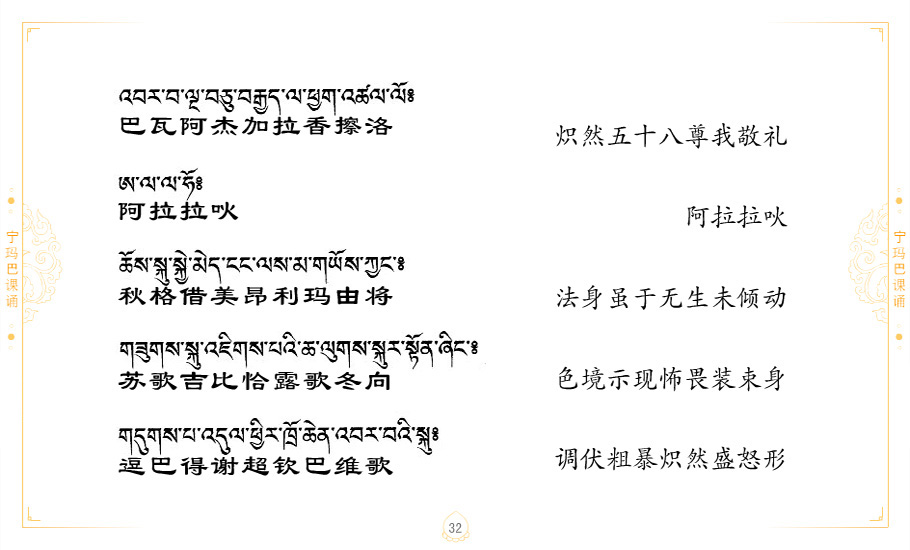 འབར་བ་ལྔ་བཅུ་བརྒྱད་ལ་ཕྱག་འཚལ་ལོ༔
巴瓦阿杰加拉香擦洛
炽然五十八尊我敬礼
ཨ་ལ་ལ་ཧོ༔
阿拉拉吙
阿拉拉吙
ཆོས་སྐུ་སྐྱེ་མེད་ངང་ལས་མ་གཡོས་ཀྱང་༔
秋格借美昂利玛由将
法身虽于无生未倾动
གཟུགས་སྐུ་འཇིགས་པའི་ཆ་ལུགས་སྐུར་སྟོན་ཞིང་༔
苏歌吉比恰露歌冬向
色境示现怖畏装束身
གདུགས་པ་འདུལ་ཕྱིར་ཁྲོ་ཆེན་འབར་བའི་སྐུ༔
逗巴得谢超钦巴维歌
调伏粗暴炽然盛怒形
宁玛巴课诵
宁玛巴课诵
32